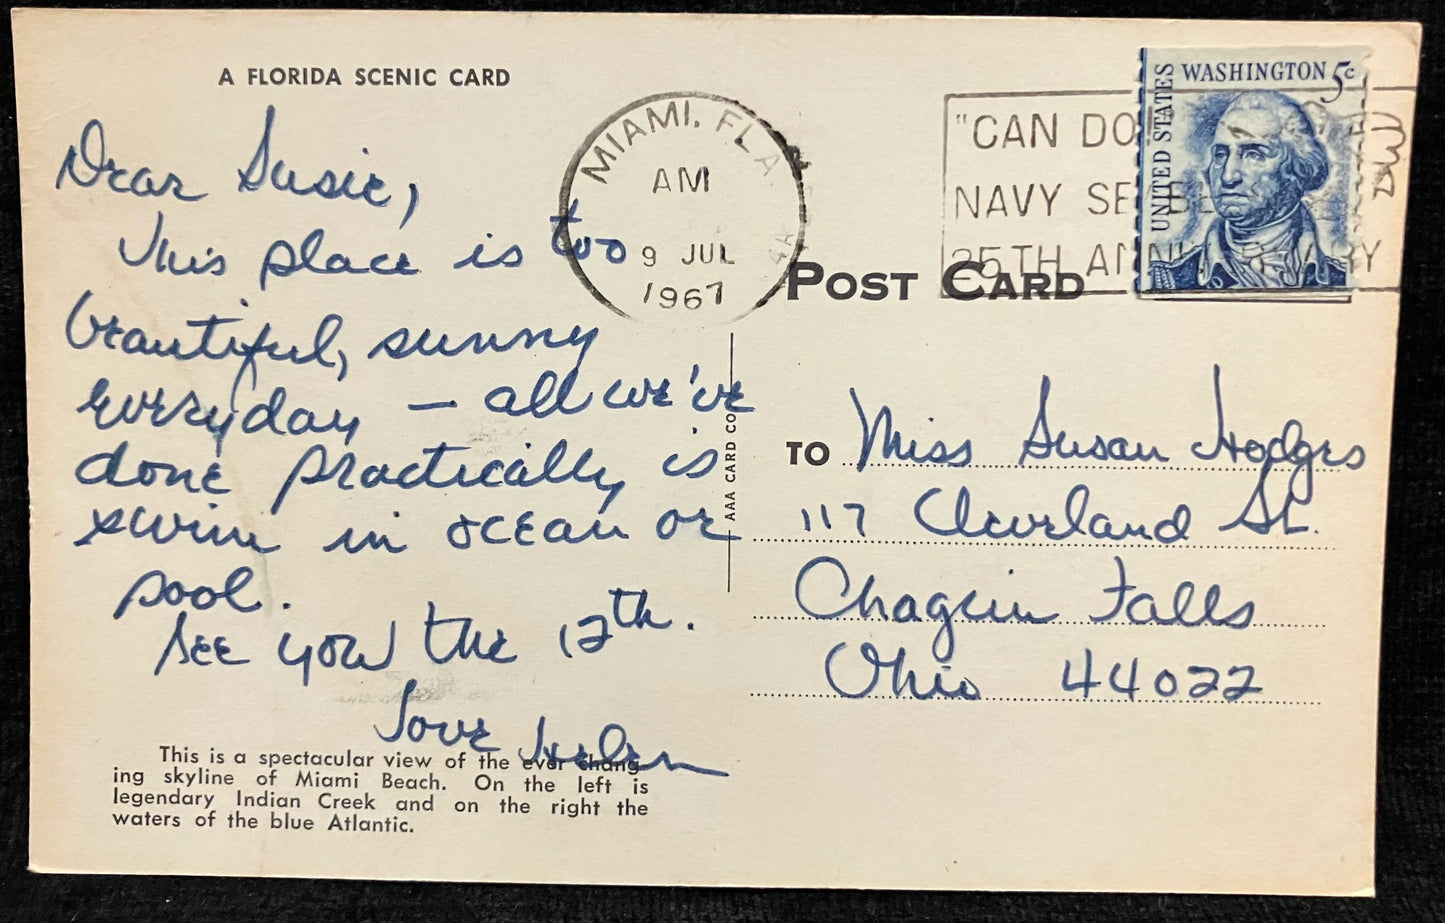 A FLORIDA SCENIC CARD
Dear Susie,
This place is too
beautiful, sunny
everyday — all we've
done practically is
swim in ocean or
pool.
See you the 12th.
Love Helen
This is a spectacular view of the ever chang-
ing skyline of Miami Beach. On the left is
legendary Indian Creek and on the right the
waters of the blue Atlantic.
MIAMI, FLA
AM
9 JUL
1967
AAA CARD CO
"CAN DO
NAVY SE
25TH ANNI RY
UNITED STATES
WASHINGTON 5c
POST CARD
TO Miss Susan Hodges
117 Cleveland St.
Chagrin Falls
Ohio 44022